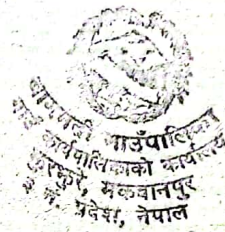 बागमती गाउँपालिका
गाउँ कार्यपालिकाको कार्यालय
मकवानपुर
३ नं. प्रदेश, नेपाल